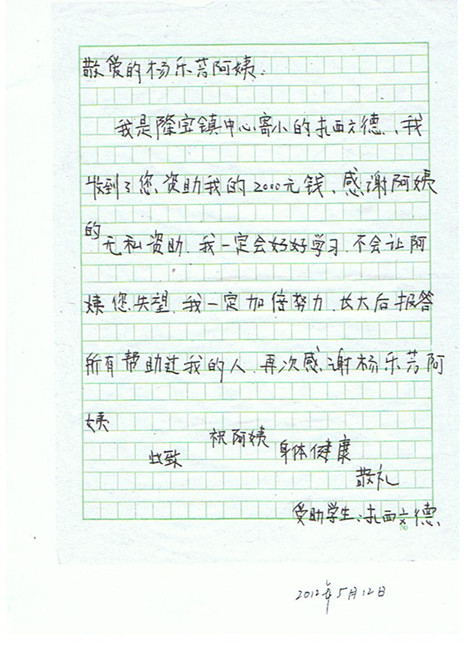 敬爱的杨乐芸阿姨:
我是隆宝镇中心寄小的扎西文德、我
收到了您资助我的2000元钱、感谢阿姨
的无私资助.我一定会好好学习.不会让阿
姨您失望.我一定加倍努力.长大后报答
所有帮助过我的人.再次感谢杨乐芸阿
姨
祝阿姨身体健康
此致
敬礼
受助学生:扎西文德
2012年5月12日